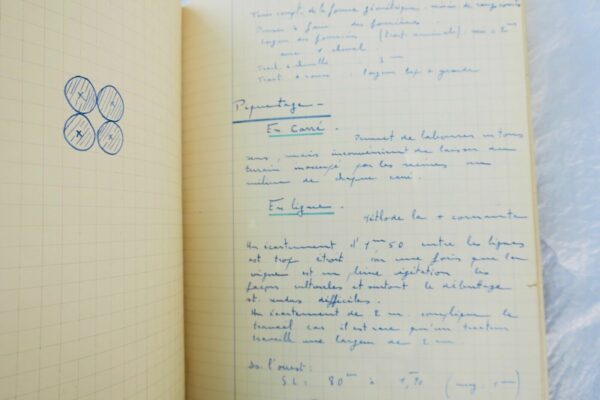 Tenir compte de la forme géométrique
Penser à faire des fourrières.
largeur des fourrières (tract. animale) : min = 2m
avec 1 cheval
Tract. à chenille : 3m
Tract. à roues : largeur bcp + grande
Piquetage
En Carré. Permet de labourer en tous
sens, mais inconvénient de laisser du
terrain inoccupé par les racines au
milieu de chaque carré.
En ligne.
Méthode la + courante
Un écartement d'1m50 entre les lignes
est trop étroit une fois que la
vigne est en pleine végétation les
façons culturales et surtout le débuttage
st rendus difficiles.
Un écartement de 2 m. complique le
travail car il est rare qu'un tracteur
travaille une largeur de 2 m.
ds. l'ouest :
S.L : 80cm à 1,m90 (moy. 1m)